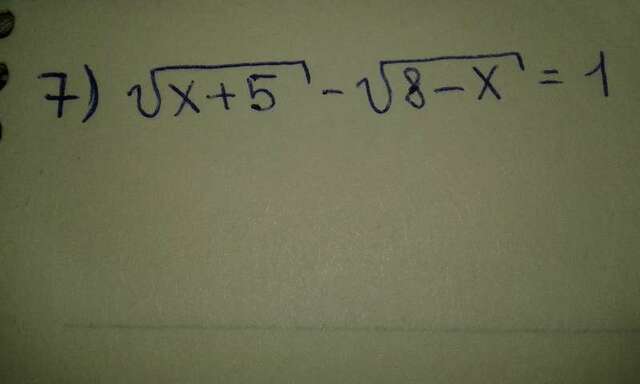 7) √(x+5) - √(8-x) = 1